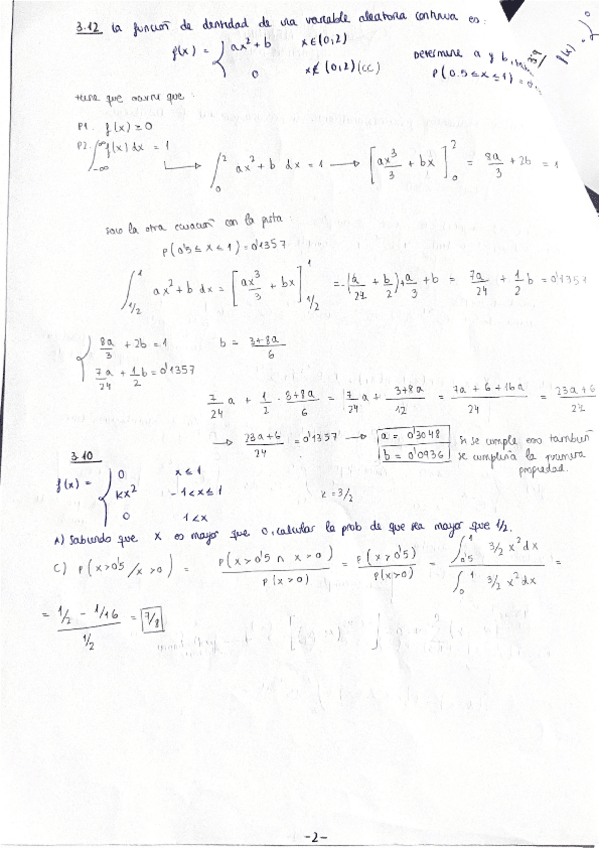 3.12 La función de densidad de una variable aleatoria continua es:
f(x) = { ax² + b x ∈ (0,2)
0 x ∉ (0,2) (cc)
Determine a y b,
P(0.5 ≤ x ≤ 1) = 0.
f(x)
tiene que ocurrir que:
P1. f(x) ≥ 0
P2. ∫_{-∞}^{∞} f(x) dx = 1 → ∫_0^2 ax² + b dx = 1 → [ax³/3 + bx]_0^2 = 8a/3 + 2b = 1
saco la otra ecuación con la pista:
P(0'5 ≤ x ≤ 1) = 0'1357
∫_{1/2}^1 ax² + b dx = [ax³/3 + bx]_{1/2}^1 = -(a/24 + b/2) + a/3 + b = 7a/24 + 1/2 b = 0'1357
{ 8a/3 + 2b = 1 b = 3+8a/6
7a/24 + 1/2 b = 0'1357
7/24 a + 1/2 · 3+8a/6 = 7/24 a + 3+8a/12 = 7a + 6 + 16a/24 = 23a + 6/24
→ 23a+6/24 = 0'1357 → a = 0'3048
b = 0'0936
si se cumple eso también
se cumpliría la primera
propiedad.
3.10
f(x) = { 0 x ≤ 1
kx² -1 < x ≤ 1
0 1 < x
k = 3/2
A) Sabiendo que X es mayor que 0, calcular la prob de que sea mayor que 1/2.
C) P(x > 0'5 / x > 0) = P(x > 0'5 ∩ x > 0)/P(x > 0) = P(x > 0'5)/P(x > 0) = ∫_{0'5}^1 3/2 x² dx / ∫_0^1 3/2 x² dx =
= 1/2 - 1/16 / 1/2 = 7/8
-2-